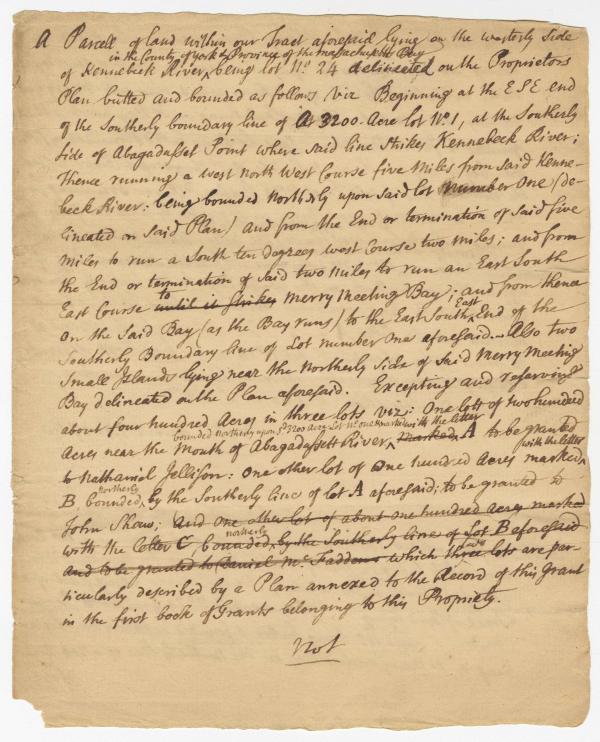 A Parcell of land within our Tract aforesaid lying on the westerly Side
in the County of york & Province of the massachusetts Bay
of Kennebeck River, being lot No. 24 delineated on the Proprietors
Plan butted and bounded as follows viz Beginning at the ESE end
of the Southerly boundary line of At 3200 Acre lot No. 1, at the Southerly
Side of Abagadusset Point where said line strikes Kennebeck River;
Thence running a west north West Course five Miles from said Kenne-
beck River: being bounded Northerly upon said lot number One (de-
lineated on said Plan) and from the End or termination of said five
Miles to run a South ten degrees west Course two Miles; and from
the End or termination of said two Miles to run an East South
to
East Course until it strikes merry meeting Bay; and from thence
East
on the Said Bay (as the Bay runs) to the East South End of the
Southerly Boundary line of Lot number one aforesaid. Also two
Small Islands lying near the Northerly Side of Said Merry Meeting
Bay delineated on the Plan aforesaid. Excepting and reserving
about four hundred Acres in three lots viz: One lott of two hundred
bounded Northerly upon sd. 3200 Acre Lot No. one marked with the letter
Acres near the Mouth of Abagadussett River, marked A to be granted
with the letter
to Nathaniel Jellison: one other lot of One hundred Acres marked
northerly
B, bounded by the Southerly line of lot A aforesaid; to be granted to
John Shaw; and one other lot of about one hundred Acres marked
northerly
with the letter C, bounded by the Southerly line of Lot B aforesaid
and to be granted to Daniel Mc. Fadden which three lots are par-
ticularly described by a Plan annexed to the Record of this Grant
in the first book of Grants belonging to this Propriety.
Not